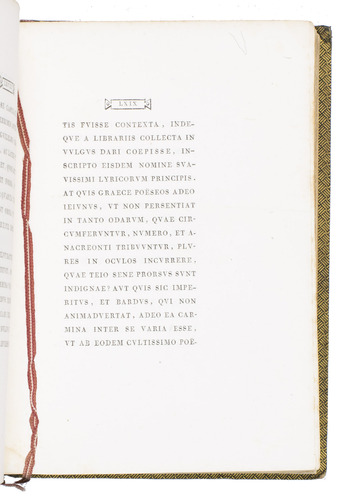 LXIX
TIS FVISSE CONTEXTA, INDE-
QVE A LIBRARIIS COLLECTA IN
VVLGVS DARI COEPISSE, IN-
SCRIPTO EISDEM NOMINE SVA-
VISSIMI LYRICORVM PRINCIPIS.
AT QVIS GRAECE POËSEOS ADEO
IEIVNVS, VT NON PERSENTIAT
IN TANTO ODARVM, QVAE CIR-
CVMFERVNTVR, NVMERO, ET A-
NACREONTI TRIBVVNTVR, PLV-
RES IN OCVLOS INCVRRERE,
QVAE TEIO SENE PRORSVS SVNT
INDIGNAE? AVT QVIS SIC IMPE-
RITVS, ET BARDVS, QVI NON
ANIMADVERTAT, ADEO EA CAR-
MINA INTER SE VARIA ESSE,
VT AB EODEM CVLTISSIMO POË-